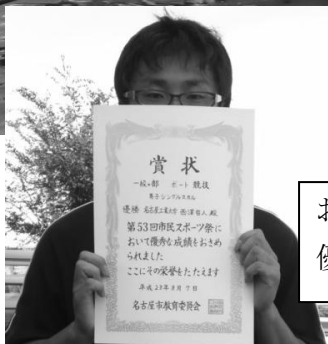 賞状
一般の部 ボート競技
男子シングルスカル
優勝 名古屋工業大学
第53回市民スポーツ祭に
おいて優秀な成績をおさめ
られました
ここにその栄誉をたたえます
平成23年8月7日
名古屋市教育委員会
優